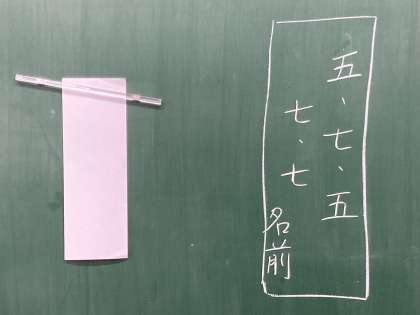 五、七、五
七、七
名前